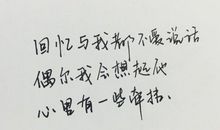 回忆与我都不爱说话
偶尔我会想起他
心里有一些牵挂.